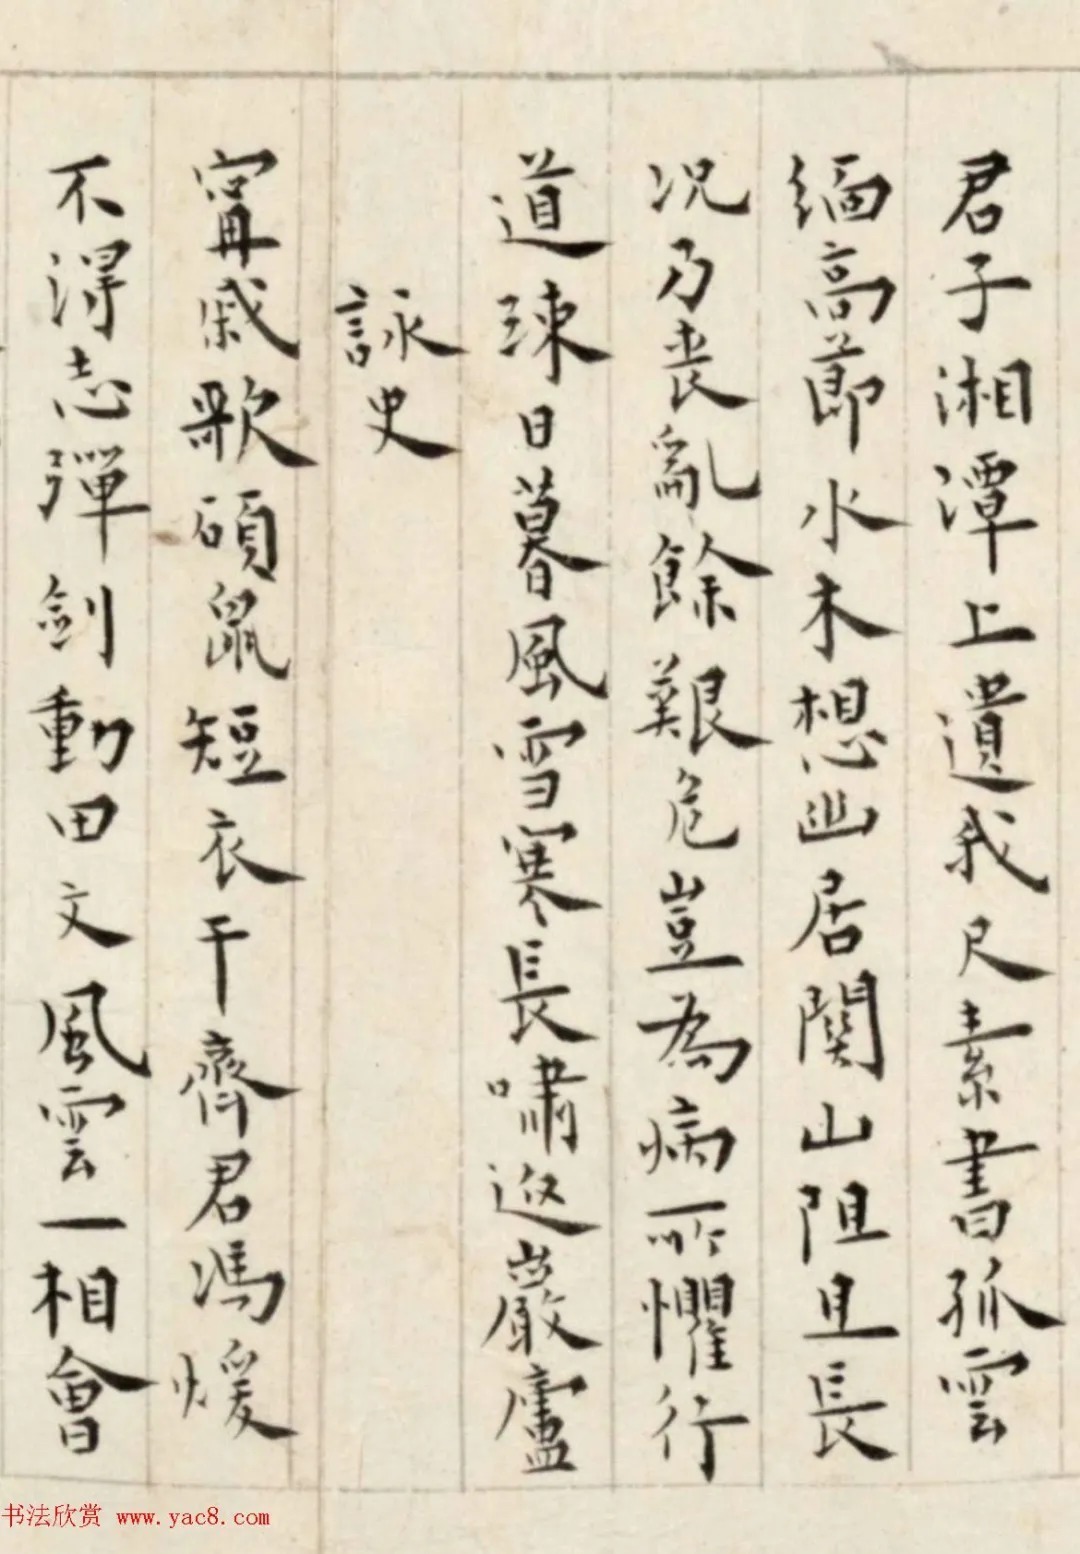 君子湘潭上遺我尺素書孤雲
緬高節水木想幽居關山阻且長
况乃喪亂餘艱危豈為病所懼行
道疎日暮風雪寒長嘯返巖廬
詠史
甯戚歌碩鼠短衣干齊君馮煖
不得志彈劍動田文風雲一相會
书法欣赏 www.yac8.com